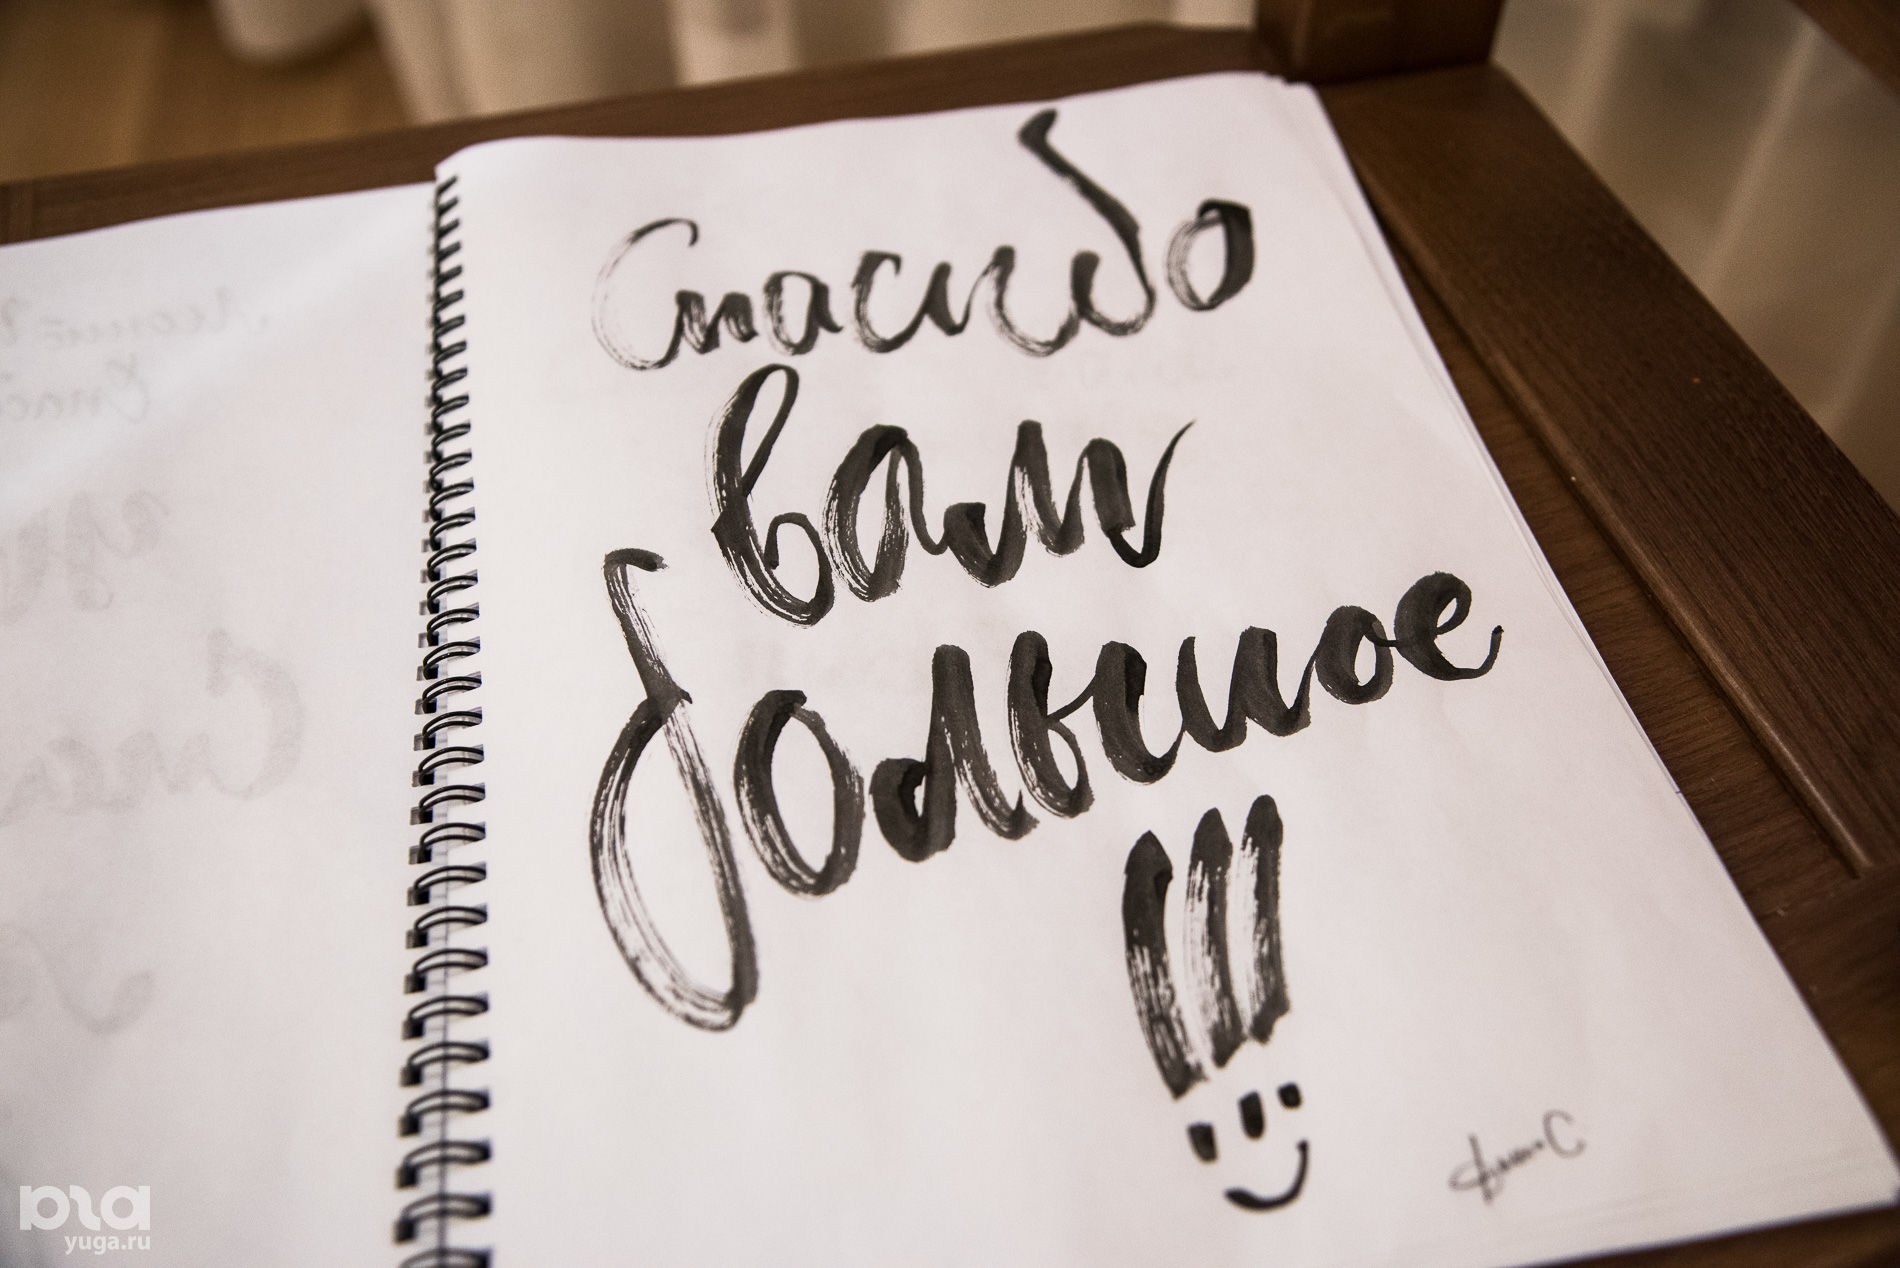 Спасибо
вам
большое
!!!
yuga.ru